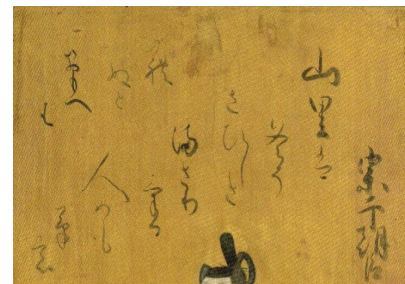 源宗于朝臣
山里は
冬そ
さひしさ
満さり
ける
人めも
草も
かれ
ぬと
おもへ
は